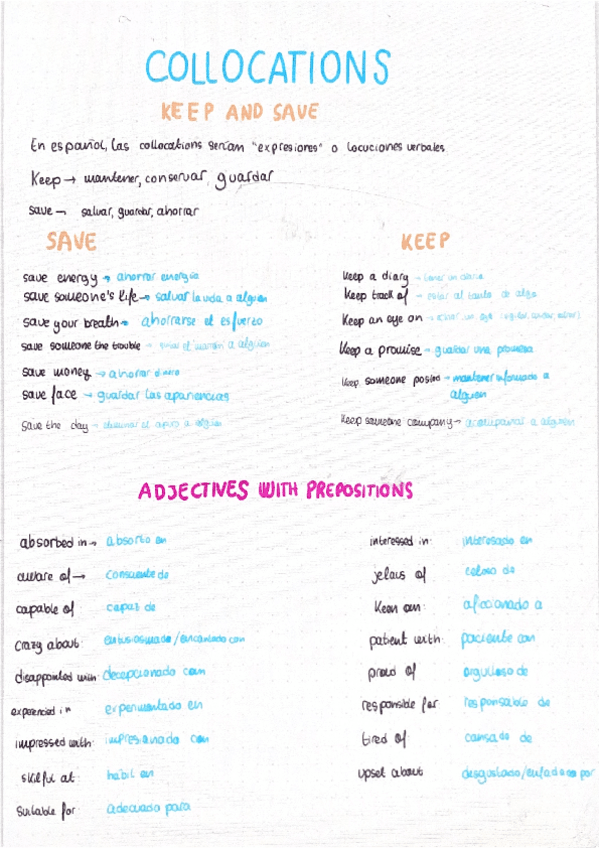 COLLOCATIONS
KEEP AND SAVE
En español, las collocations serían "expresiones" o locuciones verbales
Keep → mantener, conservar, guardar
save → salvar, guardar, ahorrar
SAVE
save energy → ahorrar energía
save someone's life → salvar la vida a alguien
save your breath → ahorrarse el esfuerzo
save someone the trouble → a alguien
save money → ahorrar dinero
save face → guardar las apariencias
save the day → el apuro a alguien
KEEP
Keep a diary → tener un diario
Keep track of → estar al tanto de algo
Keep an eye on → echar un ojo
Keep a promise → guardar una promesa
Keep someone posted → mantener informado a
alguien
Keep someone company → acompañar a alguien
ADJECTIVES WITH PREPOSITIONS
absorbed in → absorto en
aware of → consciente de
capable of: capaz de
crazy about: entusiasmado/encantado con
disappointed with: decepcionado con
experienced in experimentado en
impressed with: impresionado con
skilful at: hábil en
suitable for: adecuado para
interested in: interesado en
jelous of: celoso de
Keen on: aficionado a
patient with: paciente con
proud of: orgulloso de
responsible for responsable de
tired of: cansado de
upset about: disgustado/enfadado por